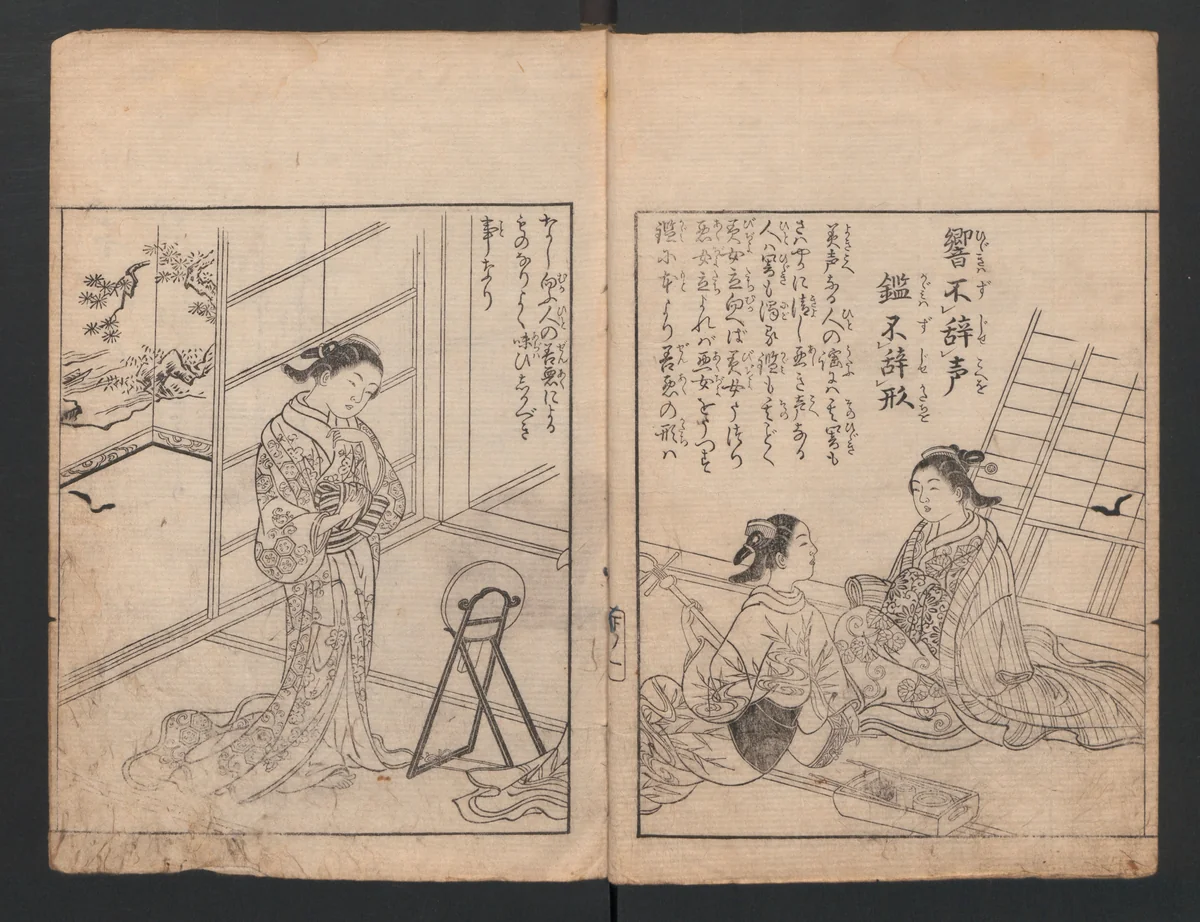 響不辞声
鑑不辞形
美声なる人の謡にハ其響も
さハやかに清し悪き声なる
人ハ響も濁る鑑も其ごとく
美女立向へば美女うつり
悪女立よれバ悪女をうつす
鑑に本より善悪の形ハ
なし向ふ人の善悪による
ものなりよく味ひしるべき
事なり